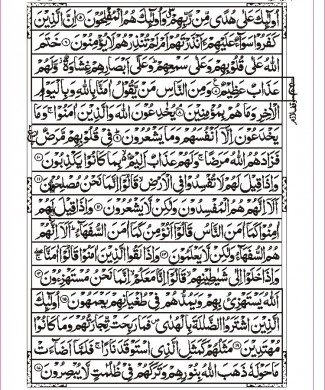 اُولٰٓئِكَ عَلٰى هُدًى مِّنْ رَّبِّهِمْ وَاُولٰٓئِكَ هُمُ الْمُفْلِحُوْنَ ۝ اِنَّ الَّذِيْنَ
كَفَرُوْا سَوَآءٌ عَلَيْهِمْ ءَاَنْذَرْتَهُمْ اَمْ لَمْ تُنْذِرْهُمْ لَا يُؤْمِنُوْنَ ۝ خَتَمَ
اللّٰهُ عَلٰى قُلُوْبِهِمْ وَعَلٰى سَمْعِهِمْ وَعَلٰٓى اَبْصَارِهِمْ غِشَاوَةٌ وَّلَهُمْ
عَذَابٌ عَظِيْمٌ ۝ وَمِنَ النَّاسِ مَنْ يَّقُوْلُ اٰمَنَّا بِاللّٰهِ وَبِالْيَوْمِ
الْاٰخِرِ وَمَا هُمْ بِمُؤْمِنِيْنَ ۝ يُخٰدِعُوْنَ اللّٰهَ وَالَّذِيْنَ اٰمَنُوْا وَمَا
يَخْدَعُوْنَ اِلَّآ اَنْفُسَهُمْ وَمَا يَشْعُرُوْنَ ۝ فِيْ قُلُوْبِهِمْ مَّرَضٌ
فَزَادَهُمُ اللّٰهُ مَرَضًا وَلَهُمْ عَذَابٌ اَلِيْمٌ بِمَا كَانُوْا يَكْذِبُوْنَ ۝
وَاِذَا قِيْلَ لَهُمْ لَا تُفْسِدُوْا فِي الْاَرْضِ قَالُوْٓا اِنَّمَا نَحْنُ مُصْلِحُوْنَ ۝
اَلَآ اِنَّهُمْ هُمُ الْمُفْسِدُوْنَ وَلٰكِنْ لَّا يَشْعُرُوْنَ ۝ وَاِذَا قِيْلَ لَهُمْ
اٰمِنُوْا كَمَآ اٰمَنَ النَّاسُ قَالُوْٓا اَنُؤْمِنُ كَمَآ اٰمَنَ السُّفَهَآءُ اَلَآ اِنَّهُمْ
هُمُ السُّفَهَآءُ وَلٰكِنْ لَّا يَعْلَمُوْنَ ۝ وَاِذَا لَقُوا الَّذِيْنَ اٰمَنُوْا قَالُوْٓا اٰمَنَّا
وَاِذَا خَلَوْا اِلٰى شَيٰطِيْنِهِمْ قَالُوْٓا اِنَّا مَعَكُمْ اِنَّمَا نَحْنُ مُسْتَهْزِءُوْنَ ۝
اَللّٰهُ يَسْتَهْزِئُ بِهِمْ وَيَمُدُّهُمْ فِيْ طُغْيَانِهِمْ يَعْمَهُوْنَ ۝ اُولٰٓئِكَ
الَّذِيْنَ اشْتَرَوُا الضَّلٰلَةَ بِالْهُدٰى فَمَا رَبِحَتْ تِّجَارَتُهُمْ وَمَا كَانُوْا
مُهْتَدِيْنَ ۝ مَثَلُهُمْ كَمَثَلِ الَّذِى اسْتَوْقَدَ نَارًا فَلَمَّآ اَضَآءَتْ
مَا حَوْلَهٗ ذَهَبَ اللّٰهُ بِنُوْرِهِمْ وَتَرَكَهُمْ فِيْ ظُلُمٰتٍ لَّا يُبْصِرُوْنَ ۝